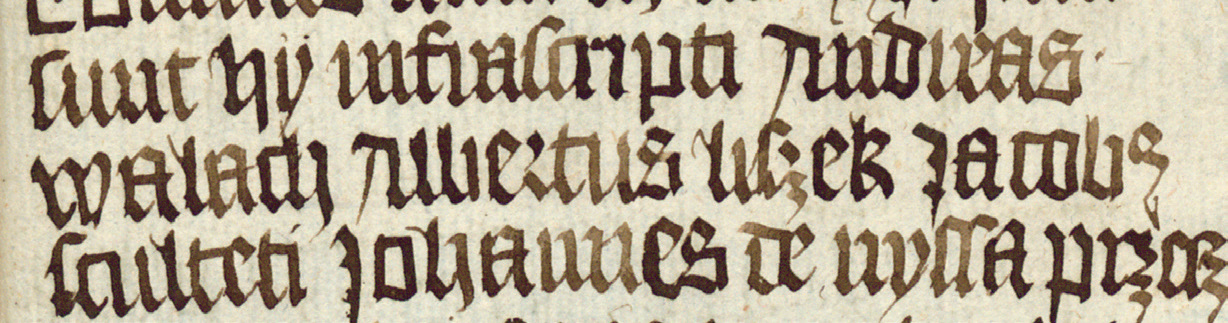 sunt hij infrascripti Andreas
walach Albertus liszek Jacobus
sculteti Johannes de nyssa